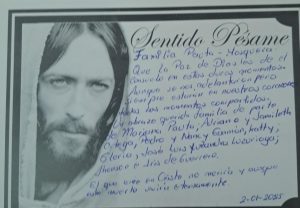 Sentido Pésame
Familia Pauta - Mosquera
Que la Paz de Dios los de el
consuelo en estos duros momentos
Aunque se nos adelantaron pero
siempre estaran en nuestros corazones
todos los momentos compartidos.
Un abrazo querida familia de parte
de Mariana Pauta, Adriano y Janneth
Ortega, Pedro y Nancy Guamán, Kathy,
Gloria, José Luis y Sandra
e Iris de Guerrero.
El que cree en Cristo no morirá y aunque
este muerto vivirá eternamente
2-01-2025